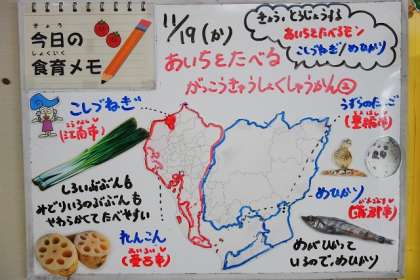 きょう
今日の
しょくいく
食育メモ
11/19(か)
きょう、とうじょうする
あいちをたべるモン
こしづねぎ/めひかり
あいちをたべる
がっこうきゅうしょくしゅうかん②
こしづねぎ
(江南市)
しろいぶぶんも
みどりいろのぶぶんも
やわらかくてたべやすい
れんこん
(愛西市)
うずらのたまご
(豊橋市)
めひかり
(蒲郡市)
めがひかって
いるので、めひかり